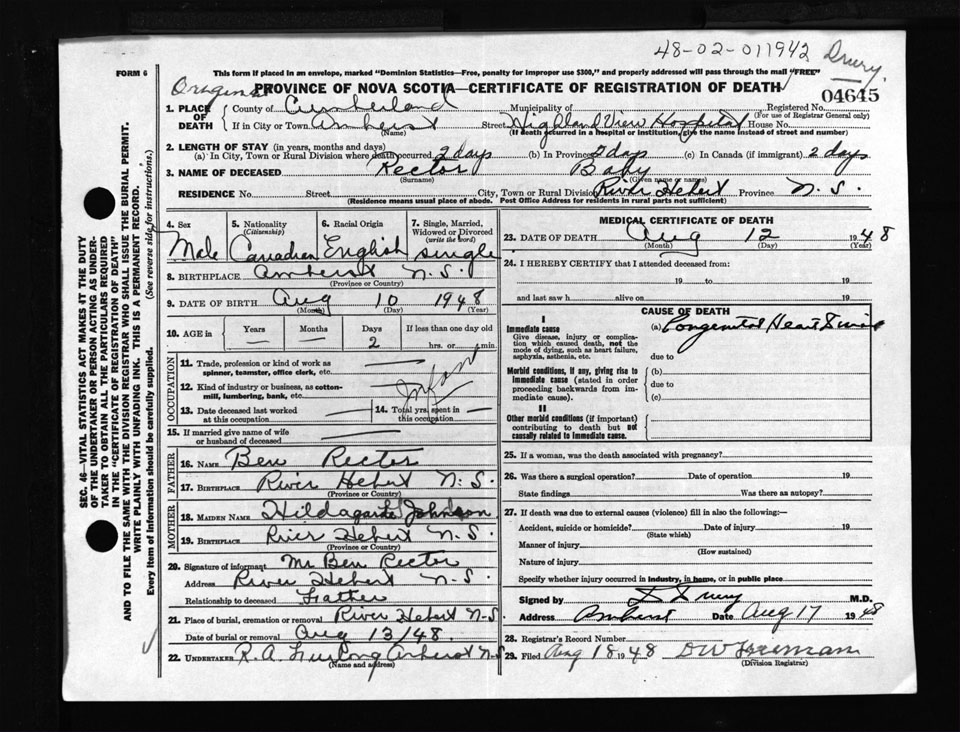 48-02-011942 Drury.
FORM 6
This form if placed in an envelope, marked "Dominion Statistics—Free, penalty for improper use $300," and properly addressed will pass through the mail "FREE"
PROVINCE OF NOVA SCOTIA—CERTIFICATE OF REGISTRATION OF DEATH
04645
1. PLACE OF DEATH
County of Cumberland Municipality of Registered No.
(For use of Registrar General only)
If in City or Town Amherst Street Highland View Hospital House No.
(Name) (If death occurred in a hospital or institution, give the name instead of street and number)
2. LENGTH OF STAY (in years, months and days)
(a) In City, Town or Rural Division where death occurred 2 days (b) In Province 2 days (c) In Canada (if immigrant) 2 days
3. NAME OF DECEASED Rector Baby
(Surname) (Given name or names)
RESIDENCE No. Street City, Town or Rural Division River Hebert Province N.S.
(Residence means usual place of abode. Post Office Address for residents in rural parts not sufficient)
SEC. 46—VITAL STATISTICS ACT MAKES IT THE DUTY
OF THE UNDERTAKER OR PERSON ACTING AS UNDER-
TAKER TO OBTAIN ALL THE PARTICULARS REQUIRED
IN THE "CERTIFICATE OF REGISTRATION OF DEATH"
AND TO FILE THE SAME WITH THE DIVISION REGISTRAR WHO SHALL ISSUE THE BURIAL PERMIT.
WRITE PLAINLY WITH UNFADING INK. THIS IS A PERMANENT RECORD.
Every item of information should be carefully supplied. (See reverse side for instructions.)
4. Sex 5. Nationality 6. Racial Origin 7. Single, Married,
(Citizenship) Widowed or Divorced
(write the word)
Male Canadian English single
8. BIRTHPLACE Amherst N.S.
(Province or Country)
9. DATE OF BIRTH Aug 10 1948
(Month) (Day) (Year)
10. AGE in Years Months Days If less than one day old
2 hrs. or min.
OCCUPATION
11. Trade, profession or kind of work as
spinner, teamster, office clerk, etc.
12. Kind of industry or business, as cotton-
mill, lumbering, bank, etc.
Infant
13. Date deceased last worked
at this occupation
14. Total yrs. spent in
this occupation
15. If married give name of wife
or husband of deceased
FATHER
16. NAME Ben Rector
17. BIRTHPLACE River Hebert N.S.
(Province or Country)
MOTHER
18. MAIDEN NAME Hildagarde Johnson
19. BIRTHPLACE River Hebert N.S.
(Province or Country)
20. Signature of informant Mr Ben Rector
Address River Hebert N-S.
Relationship to deceased Father
21. Place of burial, cremation or removal River Hebert N-S.
Date of burial or removal Aug 13/48.
22. UNDERTAKER R. A. Furlong Amherst N-S
(Name and address)
MEDICAL CERTIFICATE OF DEATH
23. DATE OF DEATH Aug 12 1948
(Month) (Day) (Year)
24. I HEREBY CERTIFY that I attended deceased from:
19 to 19
and last saw h alive on 19
CAUSE OF DEATH
I
Immediate cause (a) Congenital Heart
Give disease, injury or complica-
tion which caused death, not the
mode of dying, such as heart failure,
asphyxia, asthenia, etc. due to
Morbid conditions, if any, giving rise to (b)
immediate cause (stated in order due to
proceeding backwards from im-
mediate cause). (c)
II
Other morbid conditions (if important)
contributing to death but not
causally related to immediate cause.
25. If a woman, was the death associated with pregnancy?
26. Was there a surgical operation? Date of operation 19
State findings Was there an autopsy?
27. If death was due to external causes (violence) fill in also the following:—
Accident, suicide or homicide? Date of injury 19
(State which)
Manner of injury
(How sustained)
Nature of injury
Specify whether injury occurred in industry, in home, or in public place
Signed by Drury M.D.
Address Amherst Date Aug 17 1948
28. Registrar's Record Number
29. Filed Aug 18 1948 D W Foreman
(Division Registrar)